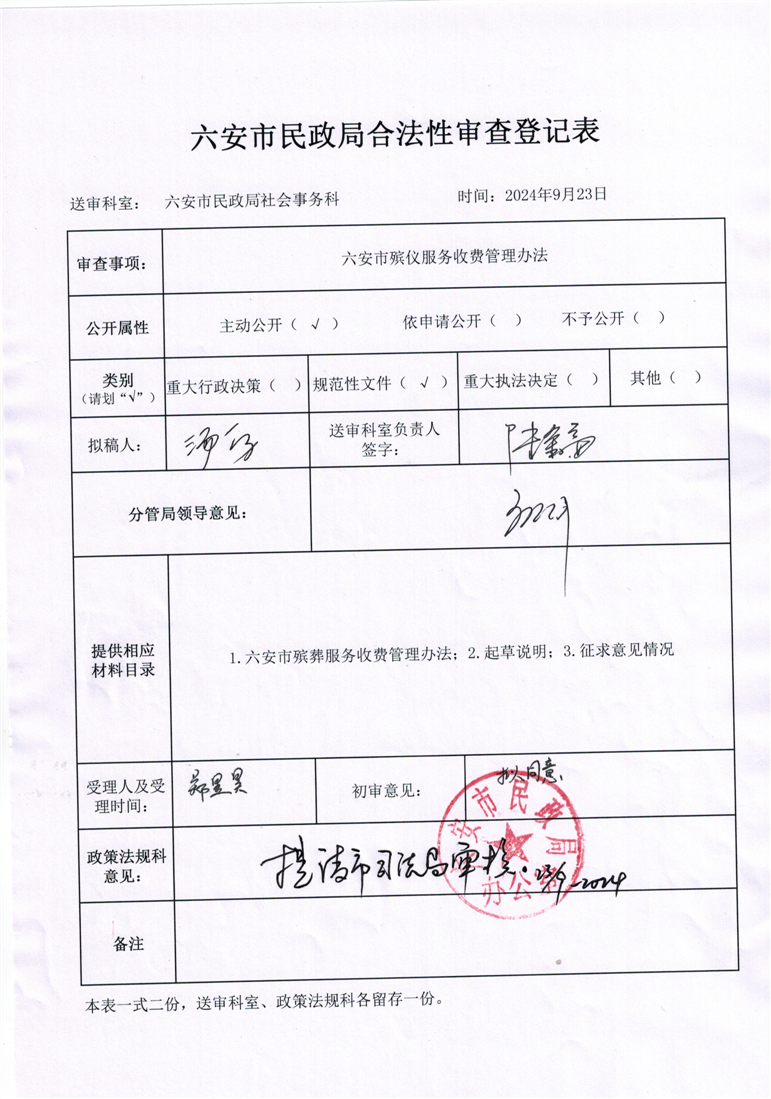 六安市民政局合法性审查登记表
送审科室: 六安市民政局社会事务科 时间: 2024年9月23日
审查事项: 六安市殡仪服务收费管理办法
公开属性 主动公开（ √ ） 依申请公开（ ） 不予公开（ ）
类别
（请划“√”）
重大行政决策（ ） 规范性文件（ √ ） 重大执法决定（ ） 其他（ ）
拟稿人:
送审科室负责人
签字:
分管局领导意见:
提供相应
材料目录
1.六安市殡葬服务收费管理办法; 2.起草说明; 3.征求意见情况
受理人及受
理时间:
初审意见: 拟同意
政策法规科
意见:
提请市司法局审核. 23/9-2024
安市民政局
办公室
备注
本表一式二份，送审科室、政策法规科各留存一份。